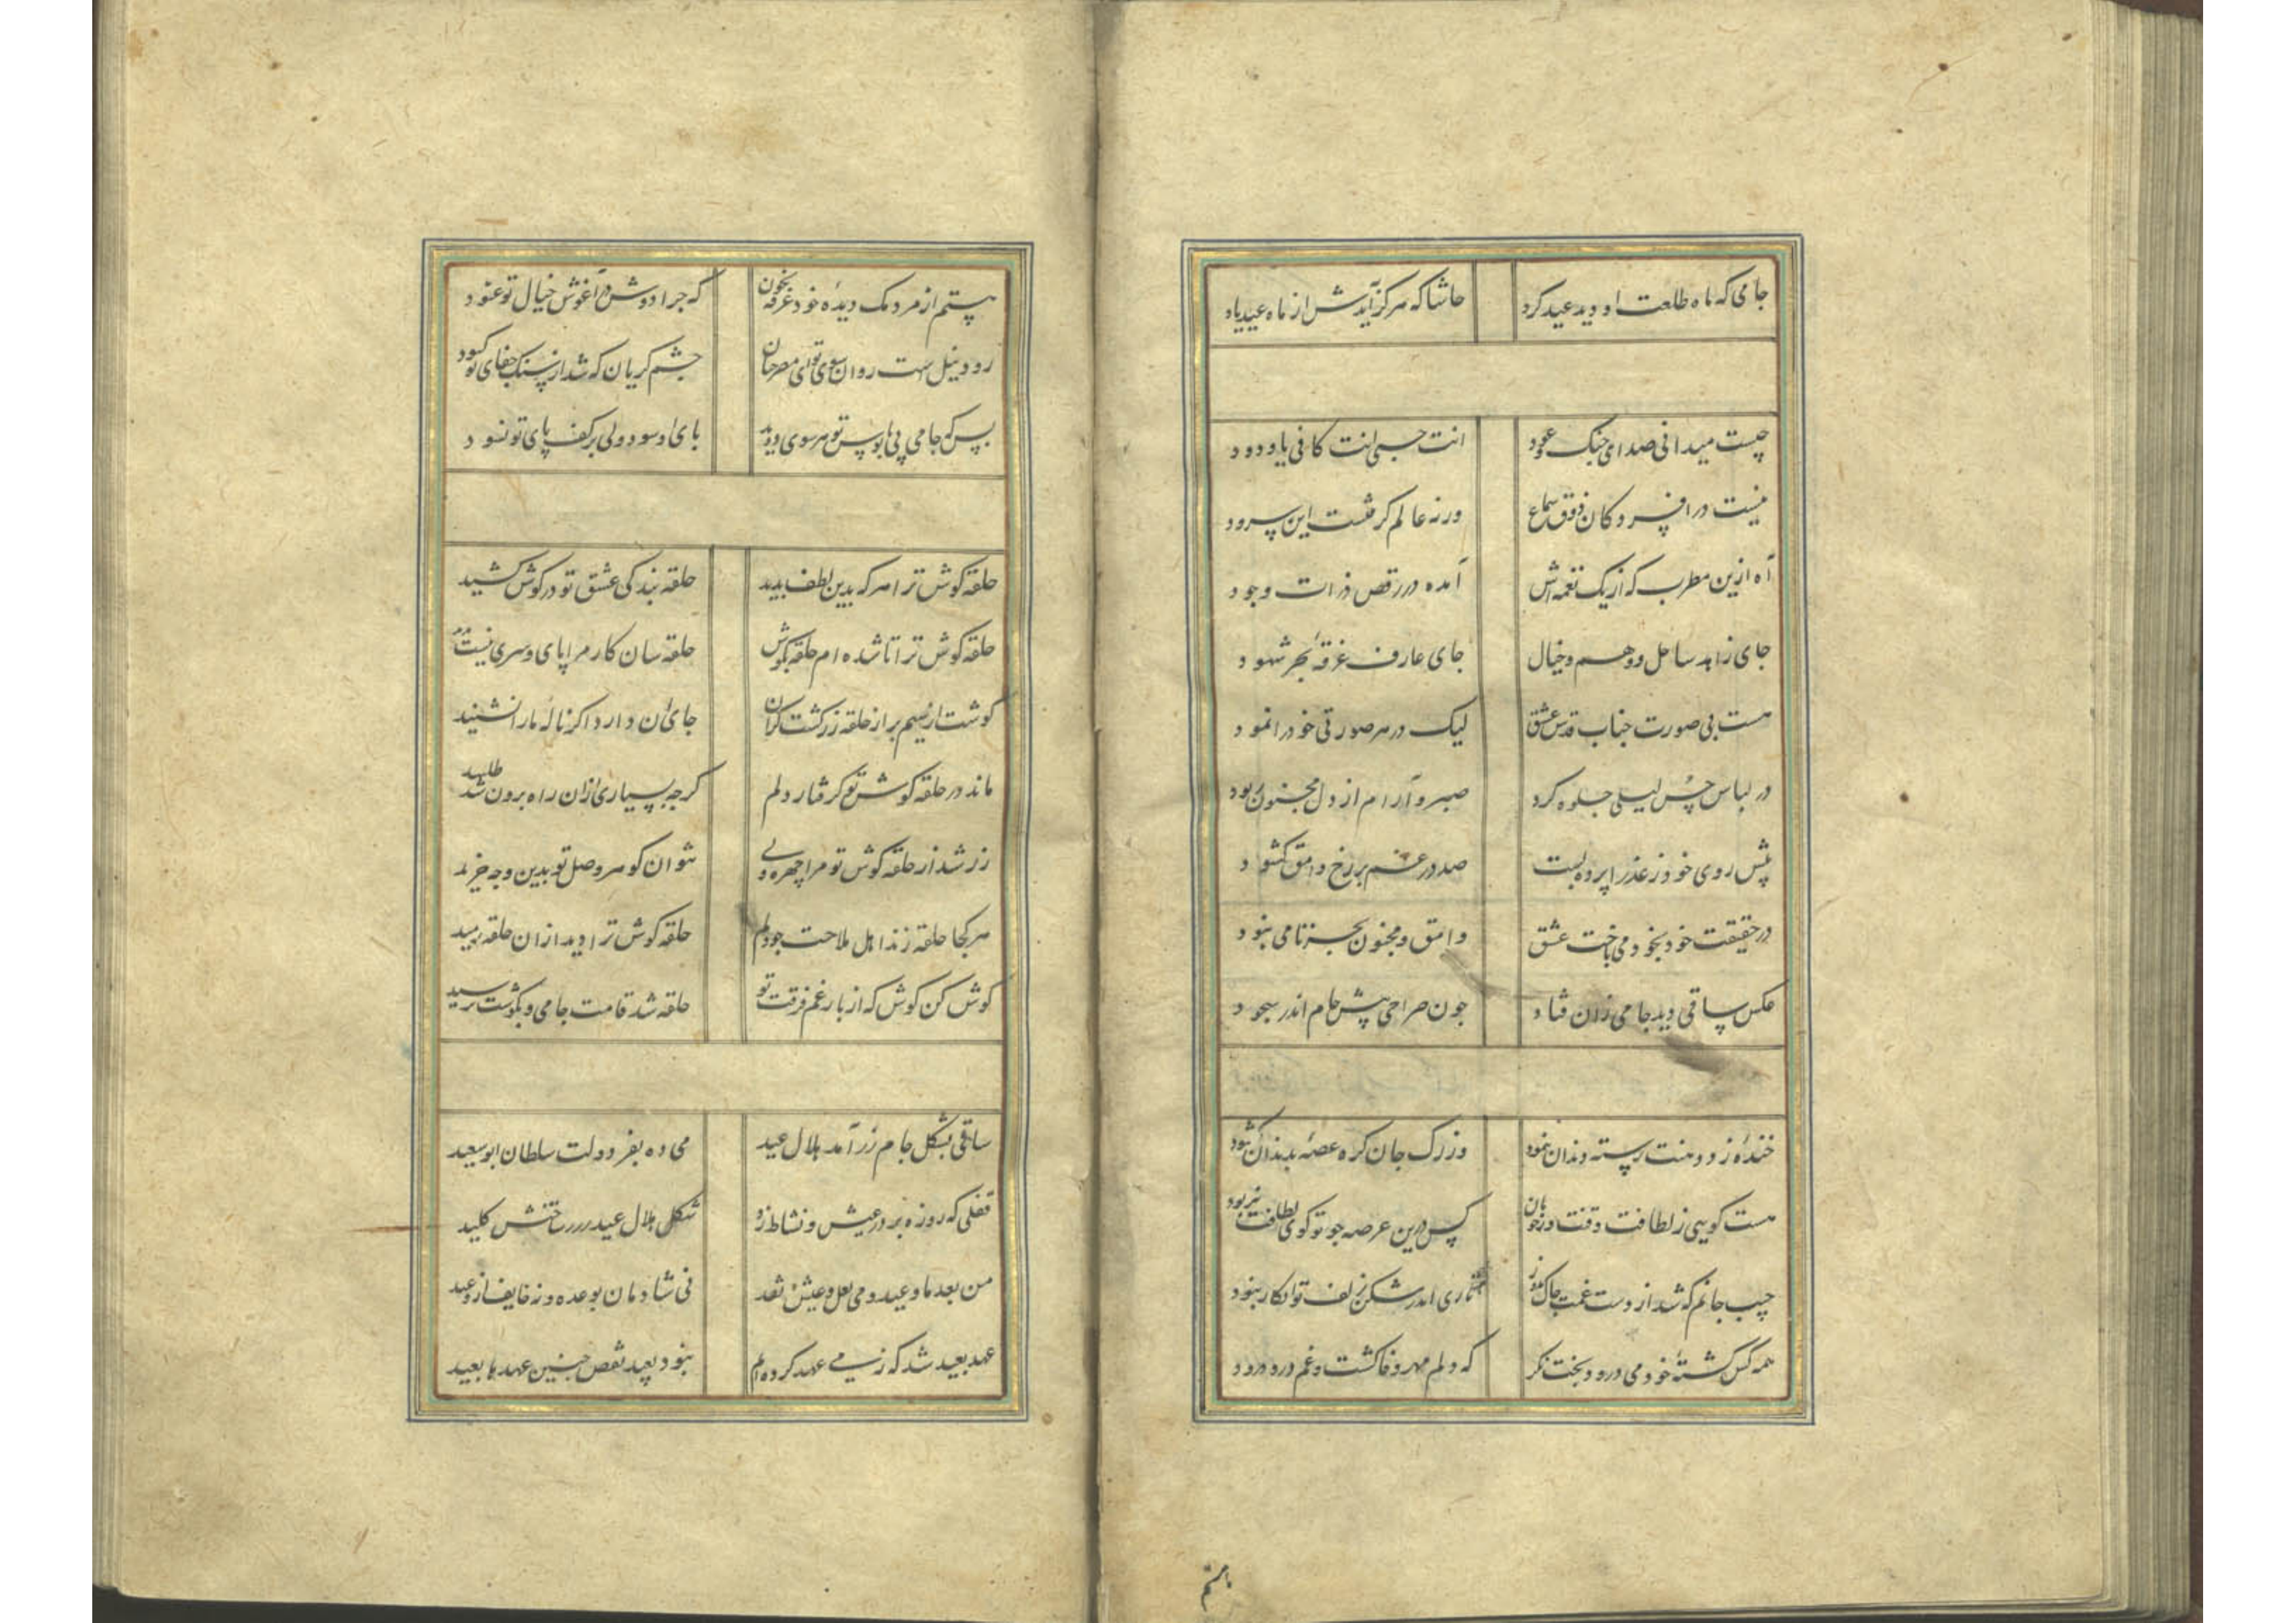 جامی که ماه طلعت او دید عید کرد حاشا که هرکز آیدش از ماه عید یاد
چیست میدانی صدای جنک و عود انت حسبی انت کافی یا ودود
نیست در افسردکان ذوق سماع ورنه عالم کرفتست این سرود
آه ازین مطرب که از یک نغمه‌اش آمده در رقص ذرات وجود
جای زاهد ساحل وهم و خیال جای عارف غرقه بحر شهود
هست بی صورت جناب قدس عشق لیک در هر صورتی خود را نمود
در لباس حسن لیلی جلوه کرد صبر و آرام از دل مجنون ربود
پیش روی خود ز عذرا پرده بست صد در غم بر رخ وامق کشود
در حقیقت خود بخود می باخت عشق وامق و مجنون بجز نامی نبود
عکس ساقی دید جامی زان فتاد جون صراحی پیش جام اندر سجود
خنده زد و دهنت رسته دندان نمود وز رک جان کره غصه بدندان کشود
هست کویی ز لطافت ذقنت ورخوبان کس درین عرصه جو تو کوی لطافت نربود
جیب جانم که شد از دست غمت جاک تاری اندر شکن زلف تو انکار نبود
همه کس کشته خود می درود بخت نکر که دلم مهر و وفا کشت و غم و درد درود
بستم
بستم از مردمک دیده خود غرقه بخون که جرا دوش در آغوش خیال تو غنود
رود نیل است روان سوی تو ای مصر جان جشم کریان که شد از سنک جفای تو کبود
بس که جامی پی پابوس تو هر سوی دوید پای او سود ولی بر کف پای تو نسود
حلقه کوش ترا هر که بدین لطف بدید حلقه بندکی عشق تو در کوش کشید
حلقه کوش ترا تا شده ام حلقه بکوش حلقه سان کار مرا پای و سری نیست
کوشت از سیم بر از حلقه زر کشت کران جای آن دارد اکر ناله ما را نشنید
ماند در حلقه کوش تو کرفتار دلم کرجه بسیاری ازان راه برون شد طلبید
زر شد از حلقه کوش تو مرا چهره ولی نتوان کوهر وصل تو بدین وجه خرید
هر کجا حلقه زند اهل ملاحت جو دلم حلقه کوش ترا دید ازان حلقه رمید
کوش کن کوش که از بار غم فرقت تو حلقه شد قامت جامی و بکوشت نرسید
ساقی بشکل جام زر آمد هلال عید می ده بفر دولت سلطان ابوسعید
قفلی که روزه بر در عیش و نشاط زد شکل هلال عید ساختش کلید
من بعد ما و عید و می لعل و عیش نقد نی شادمان بوعده و نه خایف از وعید
عهد بعید شد که ز می عهد کرده ام نبود بعید نقض جنین عهدها بعید